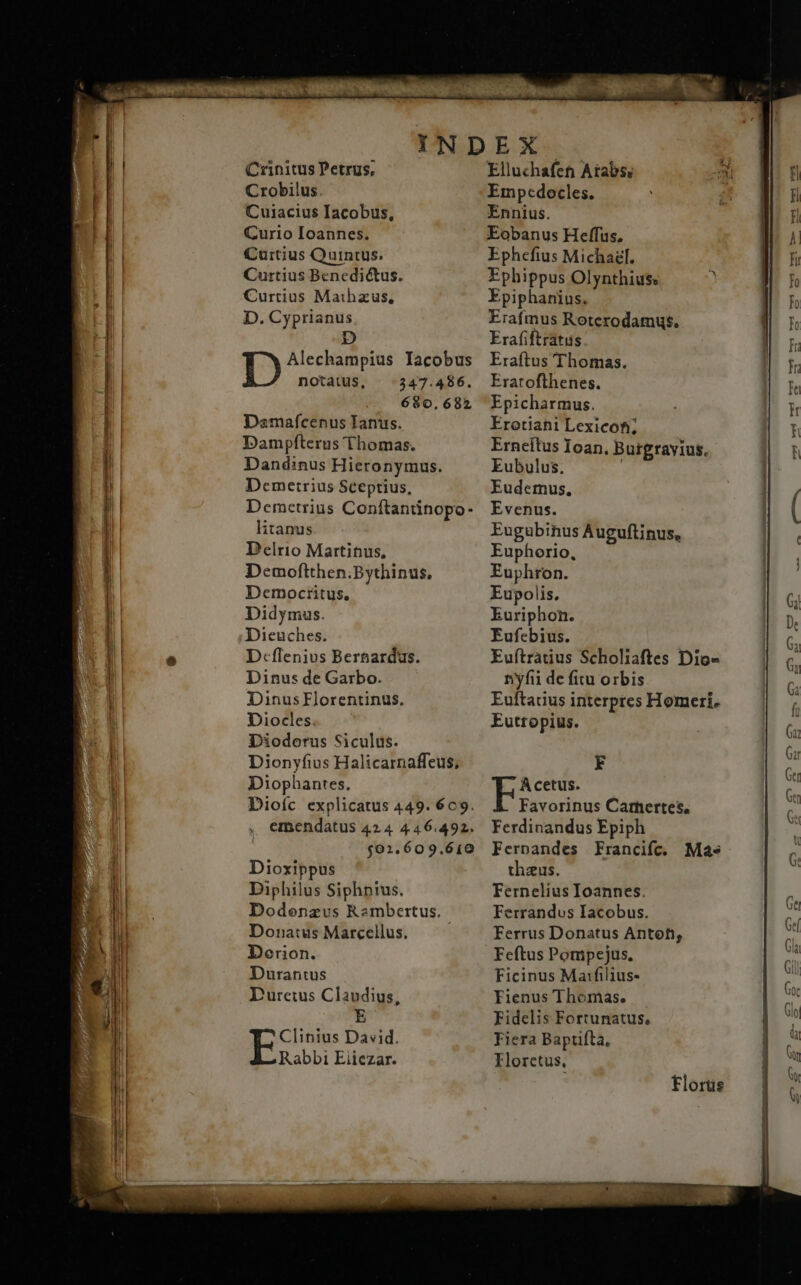 INDEX
Crinitus Petrus,
Crobilus
Cuiacius Iacobus,
Curio Ioannes.
Curtius Quintus.
Curtius Benedictus.
Curtius Mathæus,
D. Cyprianus
D
DAlechampius Iacobus
notatus, 347.486.
680.682
Damaſcenus Ianus.
Dampſterus Thomas.
Dandinus Hieronymus.
Demetrius Sceptius,
Demetrius Conſtantinopo-
litanus
Delrio Martinus,
Demoſtthen.Bythinus,
Democritus,
Didymus.
Dieuches.
Deſſenius Bernardus.
Dinus de Garbo.
Dinus Florentinus.
Diocles.
Diodorus Siculus.
Dionyſius Halicarnaſſeus,
Diophantes.
Dioſc explicatus 449.609.
emendatus 424 446.492.
502.609.610
Dioxippus
Diphilus Siphnius.
Dodonæus Rambertus.
Donatus Marcellus,
Dorion.
Durantus
Duretus Claudius,
E
EClinius David.
Rabbi Eliezar.
Elluchaſen Arabs,
Empedocles.
Ennius.
Eobanus Heſſus.
Epheſius Michaël.
Ephippus Olynthius.
Epiphanius.
Eraſmus Roterodamus.
Eraſiſtratus
Eraſtus Thomas.
Eratoſthenes.
Epicharmus.
Erotiani Lexicon,
Erneſtus Ioan. Burgravius.
Eubulus.
Eudemus,
Evenus.
Eugubinus Auguſtinus,
Euphorio,
Euphron.
Eupolis.
Euriphon.
Euſebius.
Euſtratius Scholiaſtes Dio-
nyſii de ſitu orbis
Euſtatius interpres Homeri.
Eutropius.
F
FAcetus.
Favorinus Camertes.
Ferdinandus Epiph
Fernandes Franciſc. Mat-
thæus.
Fernelius Ioannes.
Ferrandus Iacobus.
Ferrus Donatus Anton,
Feſtus Pompejus.
Ficinus Marſilius-
Fienus Thomas.
Fidelis Fortunatus.
Fiera Baptiſta,
Floretus,
Florus